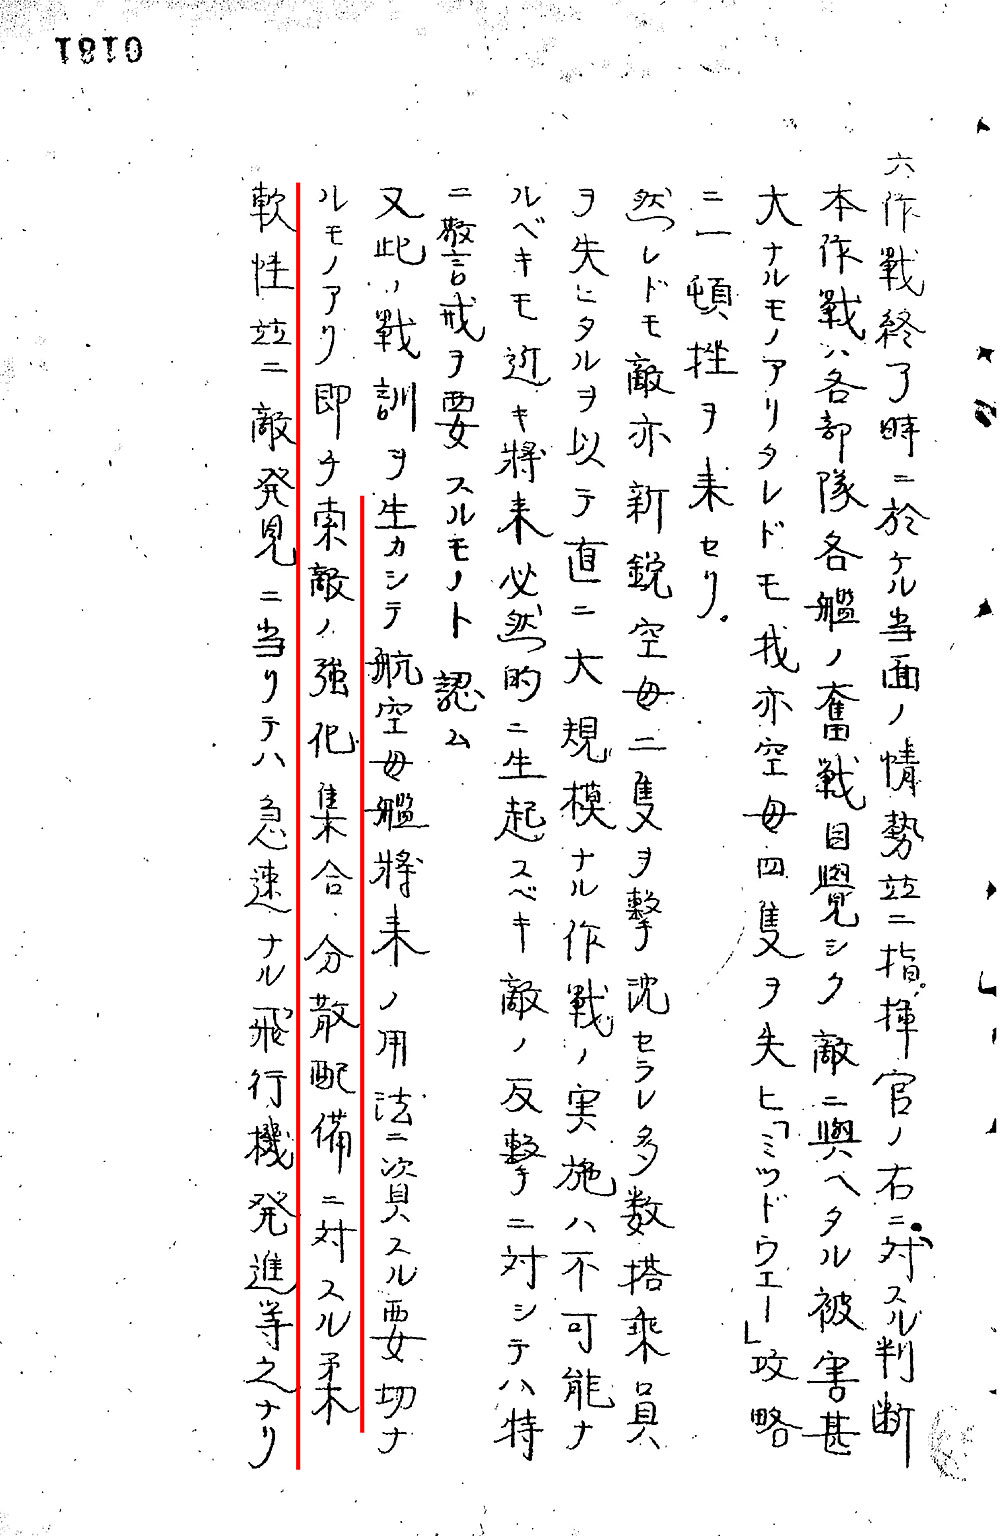 0181
六作戰終了時ニ於ケル当面ノ情勢竝ニ指揮官ノ右ニ対スル判断
本作戰ハ各部隊各艦ノ奮戰目覺シク敵ニ與ヘタル被害甚
大ナルモノアリタレドモ我亦空母四隻ヲ失ヒ「ミッドウエー」攻略
ニ一頓挫ヲ来セリ。
然レドモ敵亦新鋭空母二隻ヲ撃沈セラレ多数搭乘員
ヲ失ヒタルヲ以テ直ニ大規模ナル作戰ノ実施ハ不可能ナ
ルベキモ近キ將来必然的ニ生起スベキ敵ノ反撃ニ対シテハ特
ニ警戒ヲ要スルモノト認ム
又此ノ戰訓ヲ生カシテ航空母艦將来ノ用法ニ資スル要切ナ
ルモノアリ即チ索敵ノ強化集合分散配備ニ対スル柔
軟性竝ニ敵発見ニ当リテハ急速ナル飛行機発進等之ナリ